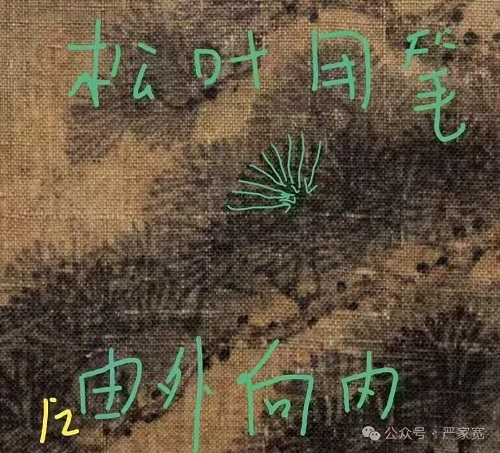 松叶用笔
由外向内
12
公众号·严家宽